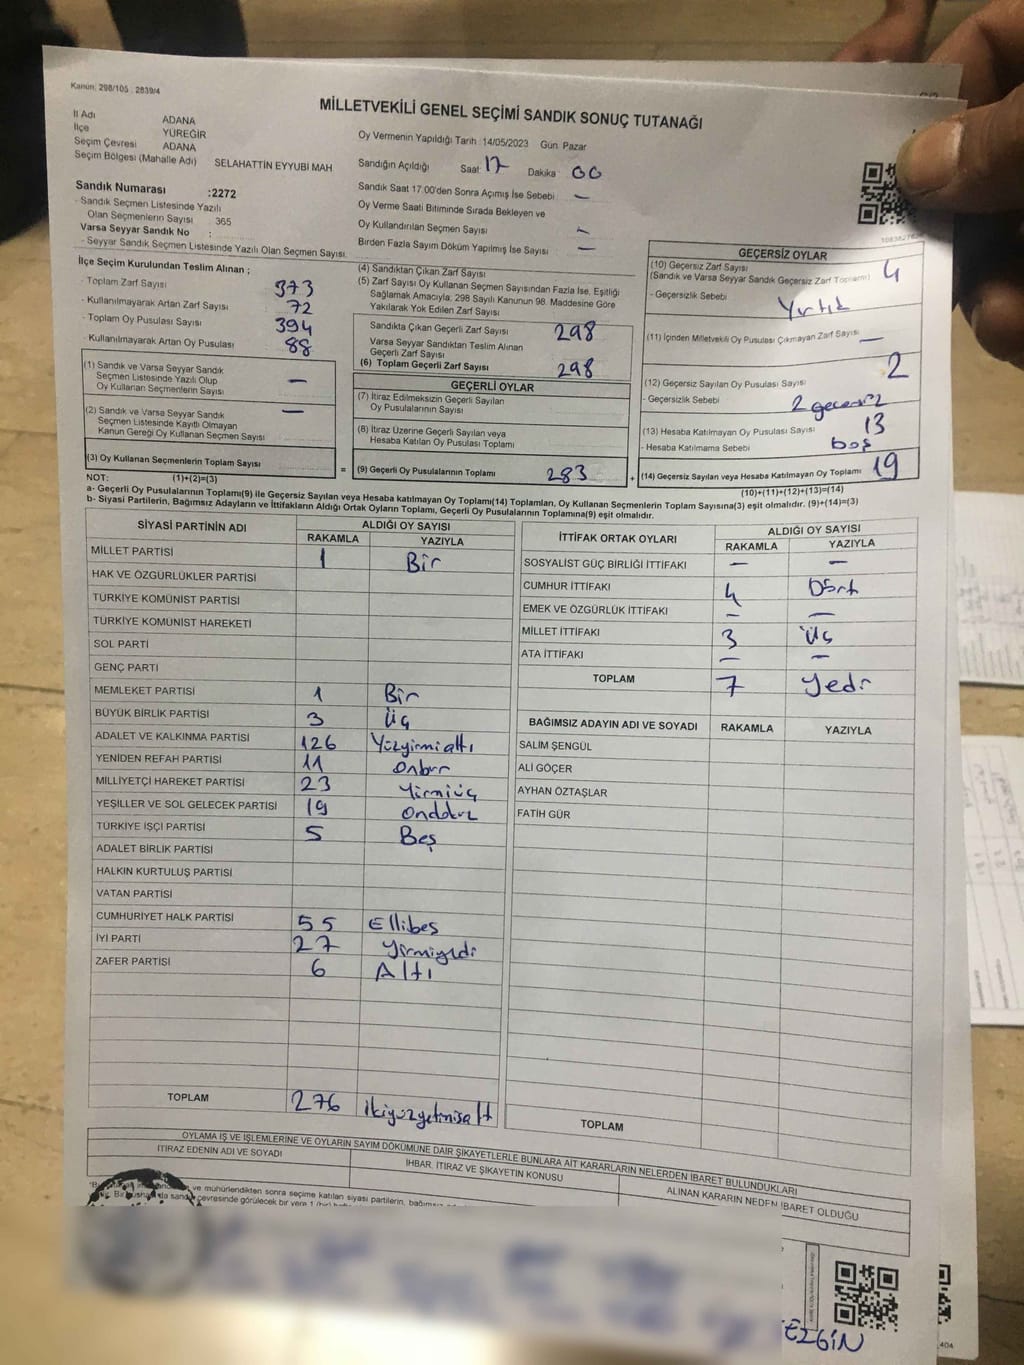 Kanun: 298/105 . 2839/4
MİLLETVEKİLİ GENEL SEÇİMİ SANDIK SONUÇ TUTANAĞI
İl Adı ADANA
İlçe YÜREĞİR
Seçim Çevresi ADANA
Seçim Bölgesi (Mahalle Adı) SELAHATTİN EYYUBİ MAH
Sandık Numarası :2272
- Sandık Seçmen Listesinde Yazılı
Olan Seçmenlerin Sayısı 365
Varsa Seyyar Sandık No :
- Seyyar Sandık Seçmen Listesinde Yazılı Olan Seçmen Sayısı
Oy Vermenin Yapıldığı Tarih :14/05/2023 Gün: Pazar
Sandığın Açıldığı Saat: 17 Dakika 00
Sandık Saat 17.00'den Sonra Açımış İse Sebebi –
Oy Verme Saati Bitiminde Sırada Bekleyen ve
Oy Kullandırılan Seçmen Sayısı –
Birden Fazla Sayım Döküm Yapılmış İse Sayısı –
İlçe Seçim Kurulundan Teslim Alınan ;
- Toplam Zarf Sayısı 373
- Kullanılmayarak Artan Zarf Sayısı 72
- Toplam Oy Pusulası Sayısı 394
- Kullanılmayarak Artan Oy Pusulası 88
(1) Sandık ve Varsa Seyyar Sandık
Seçmen Listesinde Yazılı Olup
Oy Kullanan Seçmenlerin Sayısı –
(2) Sandık ve Varsa Seyyar Sandık
Seçmen Listesinde Kayıtlı Olmayan
Kanun Gereği Oy Kullanan Seçmen Sayısı –
(3) Oy Kullanan Seçmenlerin Toplam Sayısı
(4) Sandıktan Çıkan Zarf Sayısı
(5) Zarf Sayısı Oy Kullanan Seçmen Sayısından Fazla İse, Eşitliği
Sağlamak Amacıyla; 298 Sayılı Kanunun 98. Maddesine Göre
Yakılarak Yok Edilen Zarf Sayısı
Sandıkta Çıkan Geçerli Zarf Sayısı 298
Varsa Seyyar Sandıktan Teslim Alınan
Geçerli Zarf Sayısı
(6) Toplam Geçerli Zarf Sayısı 298
GEÇERLİ OYLAR
(7) İtiraz Edilmeksizin Geçerli Sayılan
Oy Pusulalarının Sayısı
(8) İtiraz Üzerine Geçerli Sayılan veya
Hesaba Katılan Oy Pusulası Toplamı
= (9) Geçerli Oy Pusulalarının Toplamı 283 +
GEÇERSİZ OYLAR
(10) Geçersiz Zarf Sayısı
(Sandık ve Varsa Seyyar Sandık Geçersiz Zarf Toplamı) 4
- Geçersizlik Sebebi Yırtık
(11) İçinden Milletvekili Oy Pusulası Çıkmayan Zarf Sayısı –
(12) Geçersiz Sayılan Oy Pusulası Sayısı 2
- Geçersizlik Sebebi 2 geçersiz
(13) Hesaba Katılmayan Oy Pusulası Sayısı 13
- Hesaba Katılmama Sebebi boş
(14) Geçersiz Sayılan veya Hesaba Katılmayan Oy Toplamı 19
NOT: (1)+(2)=(3) (10)+(11)+(12)+(13)=(14)
a- Geçerli Oy Pusulalarının Toplamı(9) ile Geçersiz Sayılan veya Hesaba katılmayan Oy Toplamı(14) Toplamları, Oy Kullanan Seçmenlerin Toplam Sayısına(3) eşit olmalıdır. (9)+(14)=(3)
b- Siyasi Partilerin, Bağımsız Adayların ve İttifakların Aldığı Ortak Oyların Toplamı, Geçerli Oy Pusulalarının Toplamına(9) eşit olmalıdır.
SİYASİ PARTİNİN ADI ALDIĞI OY SAYISI
RAKAMLA YAZIYLA
MİLLET PARTİSİ 1 Bir
HAK VE ÖZGÜRLÜKLER PARTİSİ
TÜRKİYE KOMÜNİST PARTİSİ
TÜRKİYE KOMÜNİST HAREKETİ
SOL PARTİ
GENÇ PARTİ
MEMLEKET PARTİSİ 1 Bir
BÜYÜK BİRLİK PARTİSİ 3 Üç
ADALET VE KALKINMA PARTİSİ 126 Yüzyirmialtı
YENİDEN REFAH PARTİSİ 11 Onbir
MİLLİYETÇİ HAREKET PARTİSİ 23 Yirmiüç
YEŞİLLER VE SOL GELECEK PARTİSİ 19 Ondokuz
TÜRKİYE İŞÇİ PARTİSİ 5 Beş
ADALET BİRLİK PARTİSİ
HALKIN KURTULUŞ PARTİSİ
VATAN PARTİSİ
CUMHURİYET HALK PARTİSİ 55 Ellibeş
İYİ PARTİ 27 Yirmiyedi
ZAFER PARTİSİ 6 Altı
TOPLAM 276 İkiyüzyetmişalt
İTTİFAK ORTAK OYLARI ALDIĞI OY SAYISI
RAKAMLA YAZIYLA
SOSYALİST GÜÇ BİRLİĞİ İTTİFAKI – –
CUMHUR İTTİFAKI 4 Dört
EMEK VE ÖZGÜRLÜK İTTİFAKI – –
MİLLET İTTİFAKI 3 Üç
ATA İTTİFAKI – –
TOPLAM 7 Yedi
BAĞIMSIZ ADAYIN ADI VE SOYADI RAKAMLA YAZIYLA
SALİM ŞENGÜL
ALİ GÖÇER
AYHAN ÖZTAŞLAR
FATİH GÜR
TOPLAM
OYLAMA İŞ VE İŞLEMLERİNE VE OYLARIN SAYIM DÖKÜMÜNE DAİR ŞİKAYETLERLE BUNLARA AİT KARARLARIN NELERDEN İBARET BULUNDUKLARI
İTİRAZ EDENİN ADI VE SOYADI
İHBAR, İTİRAZ VE ŞİKAYETİN KONUSU
ALINAN KARARIN NEDEN İBARET OLDUĞU
ve mühürlendikten sonra seçime katılan siyasi partilerin, bağımsız
çevresinde görülecek bir yere 1 (bir)
EZGİN
404